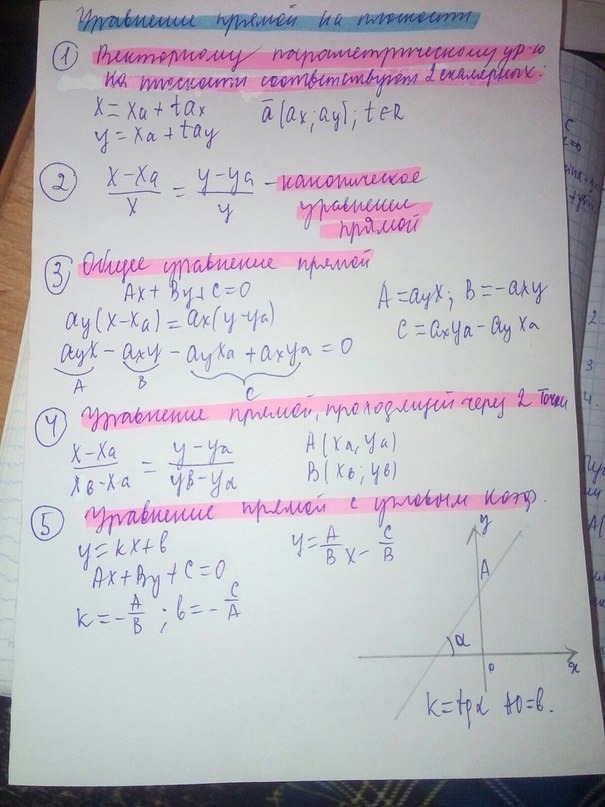 Уравнение прямой на плоскости
1 Векторному параметрическому ур-ю
на плоскости соответствуют 2 скалярных:
x = xa + tax   ā {ax; ay}; t ∈ R
y = xa + tay
2 (x - xa)/x = (y - ya)/y - каноническое
уравнение
прямой
3 Общее уравнение прямой
Ax + By + C = 0
A = ayx; B = -axy
ay(x - xa) = ax(y - ya)
C = axya - ayxa
ayx - axy - ayxa + axya = 0
A   B   C
4 Уравнение прямой, проходящей через 2 точки
(x - xa)/(xв - xa) = (y - ya)/(yв - ya)
A(xa, ya)
B(xв; yв)
5 Уравнение прямой с угловым коэф.
y = kx + в   y = A/B x - C/B
Ax + By + C = 0
k = -A/B; в = -C/A
y
A
α
0
x
k = tgα   AO = в.